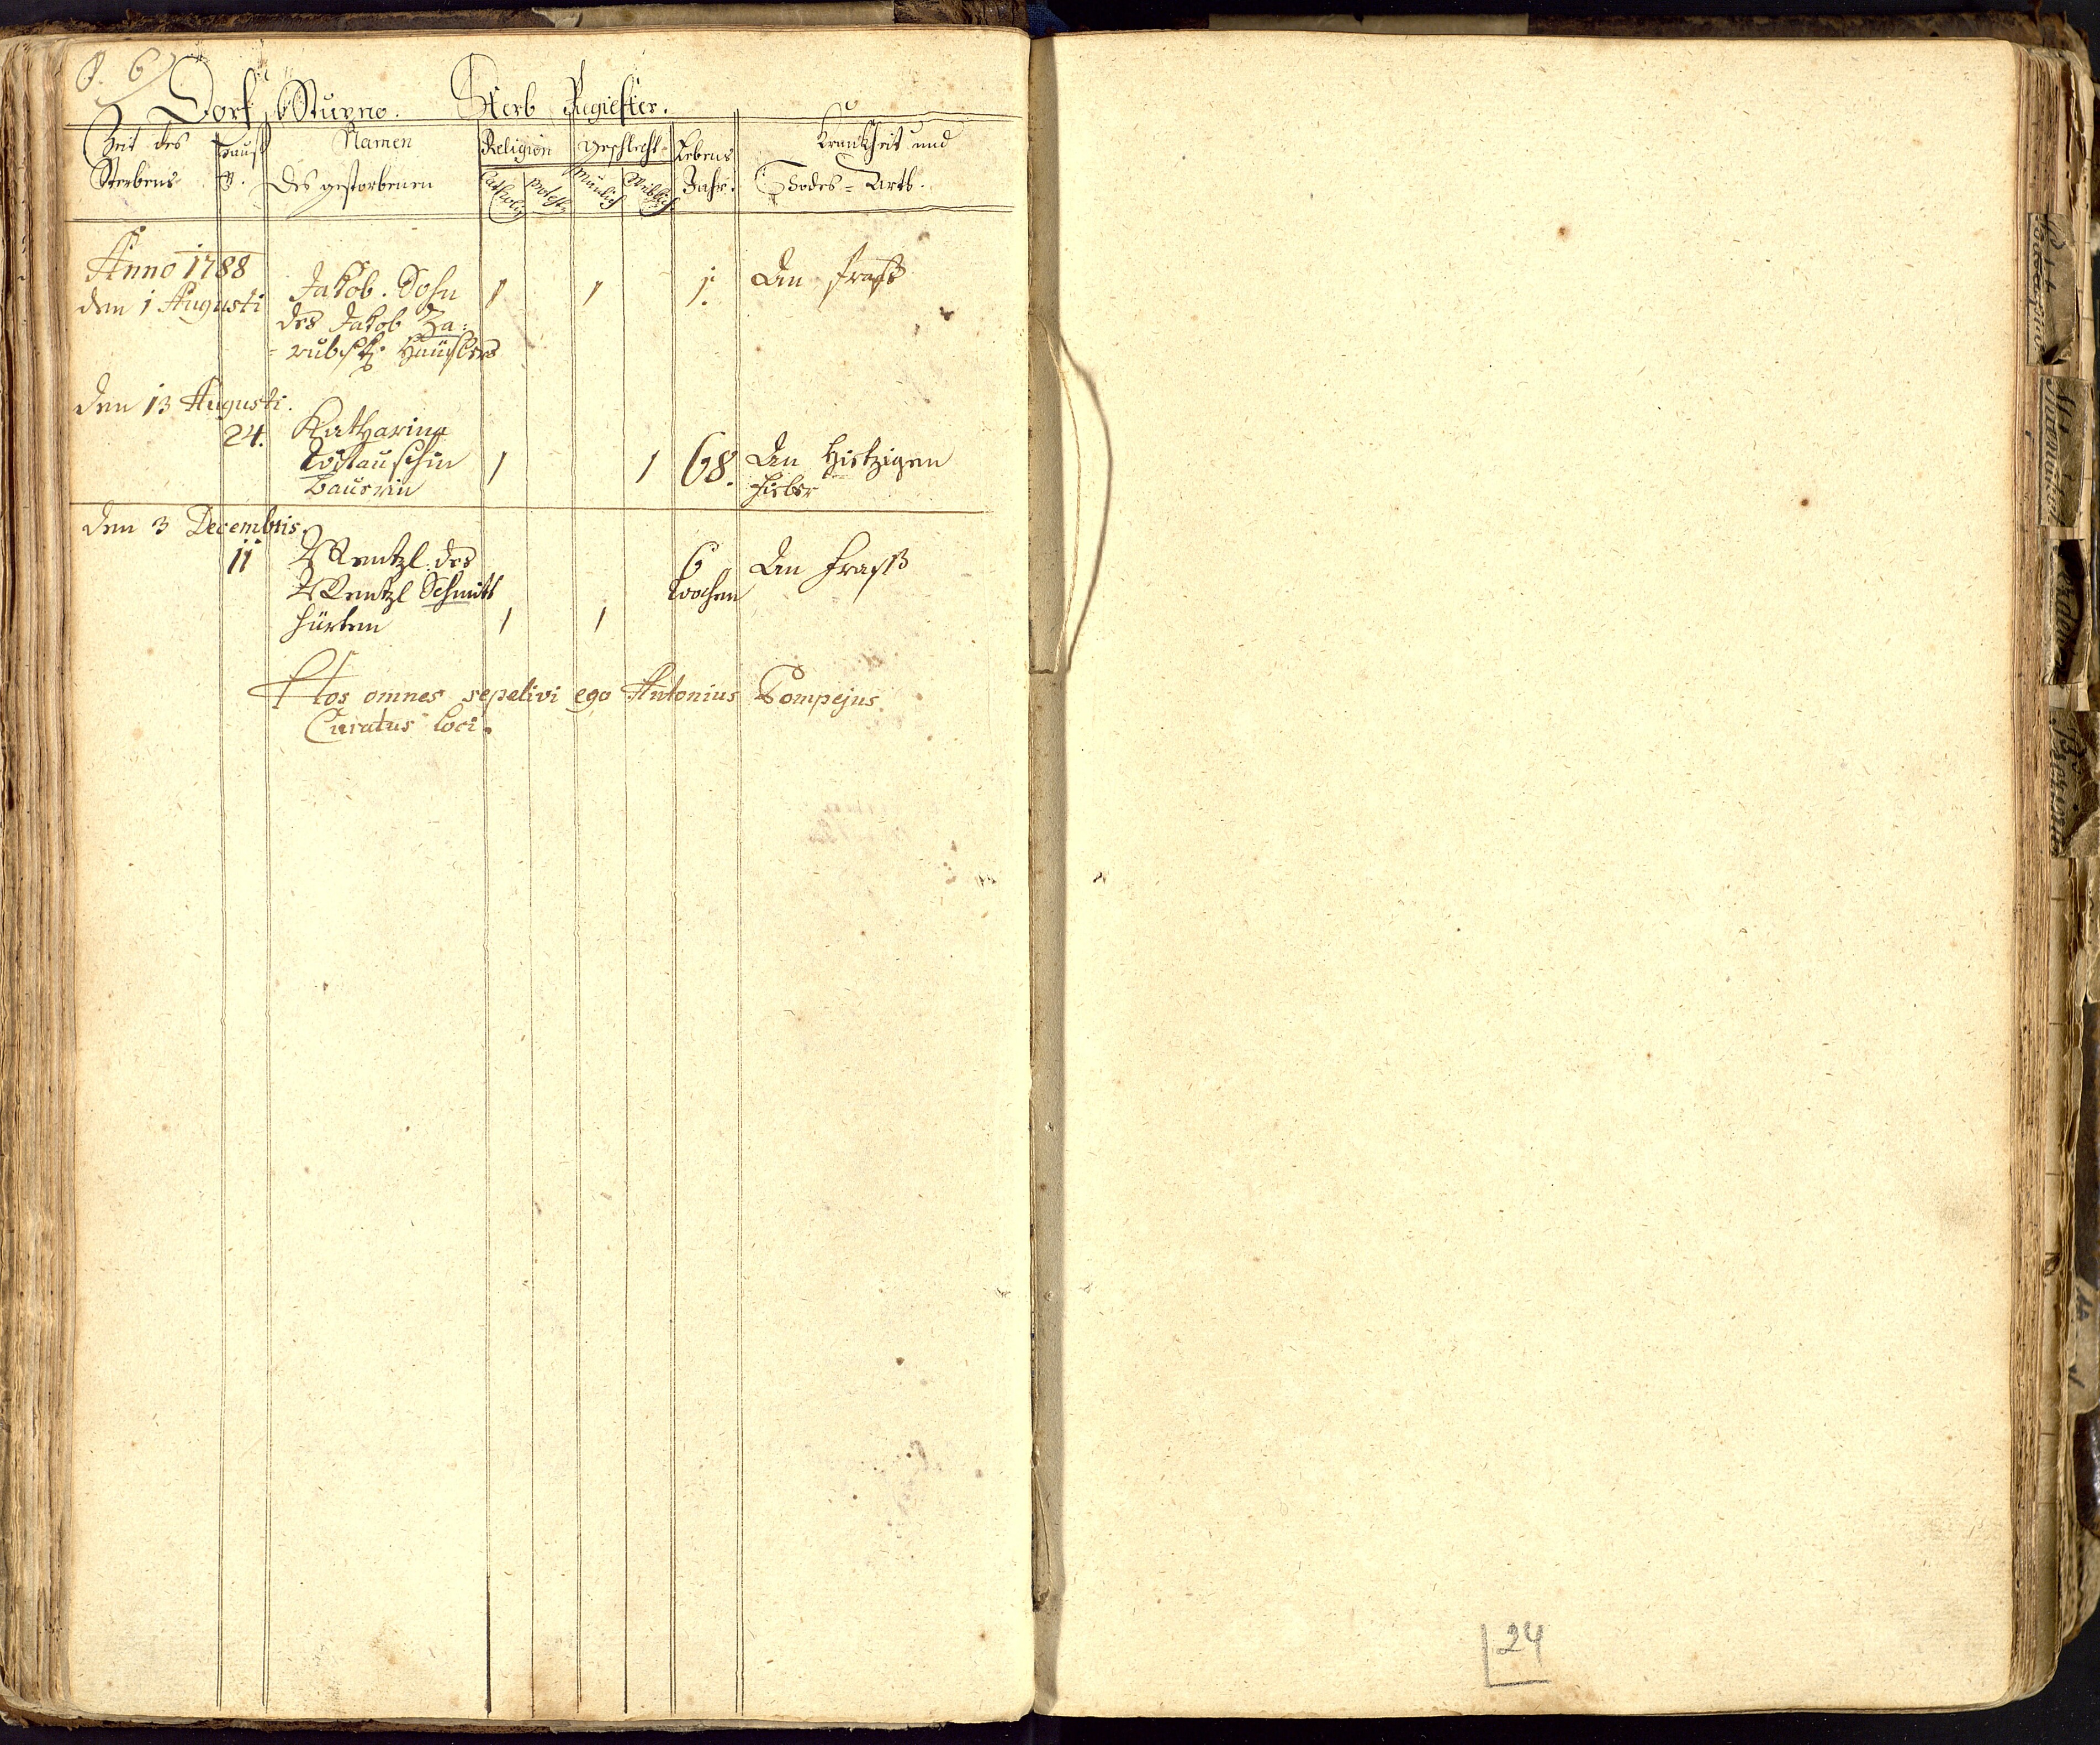 6)
Dorf Stupno. Sterb Regiester.
Zeit des Sterbens
Haus
Namen des gestorbenen
Religion
Catholisch
Protest
Geschlecht
Mänlich
Weiblich
Lebens Jahr.
Krankheit und Todes-Arth.
Anno 1788
den 1 Augusti
Jakob. Sohn
des Jakob Za:
=rubsky Häuslers
1 1 1. An Fraiß
den 13 Augusti.
24. Katharina
Bauerin
1 1 68. An Hietzigen
Fieber
den 3 Decembris.
11 Wentzl. des
Wentzl Schmitt
Hürten
1 1 6
Wochen
An Fraiß
Hos omnes sepelivi ego Antonius Pompejus
Curatus loci.
24